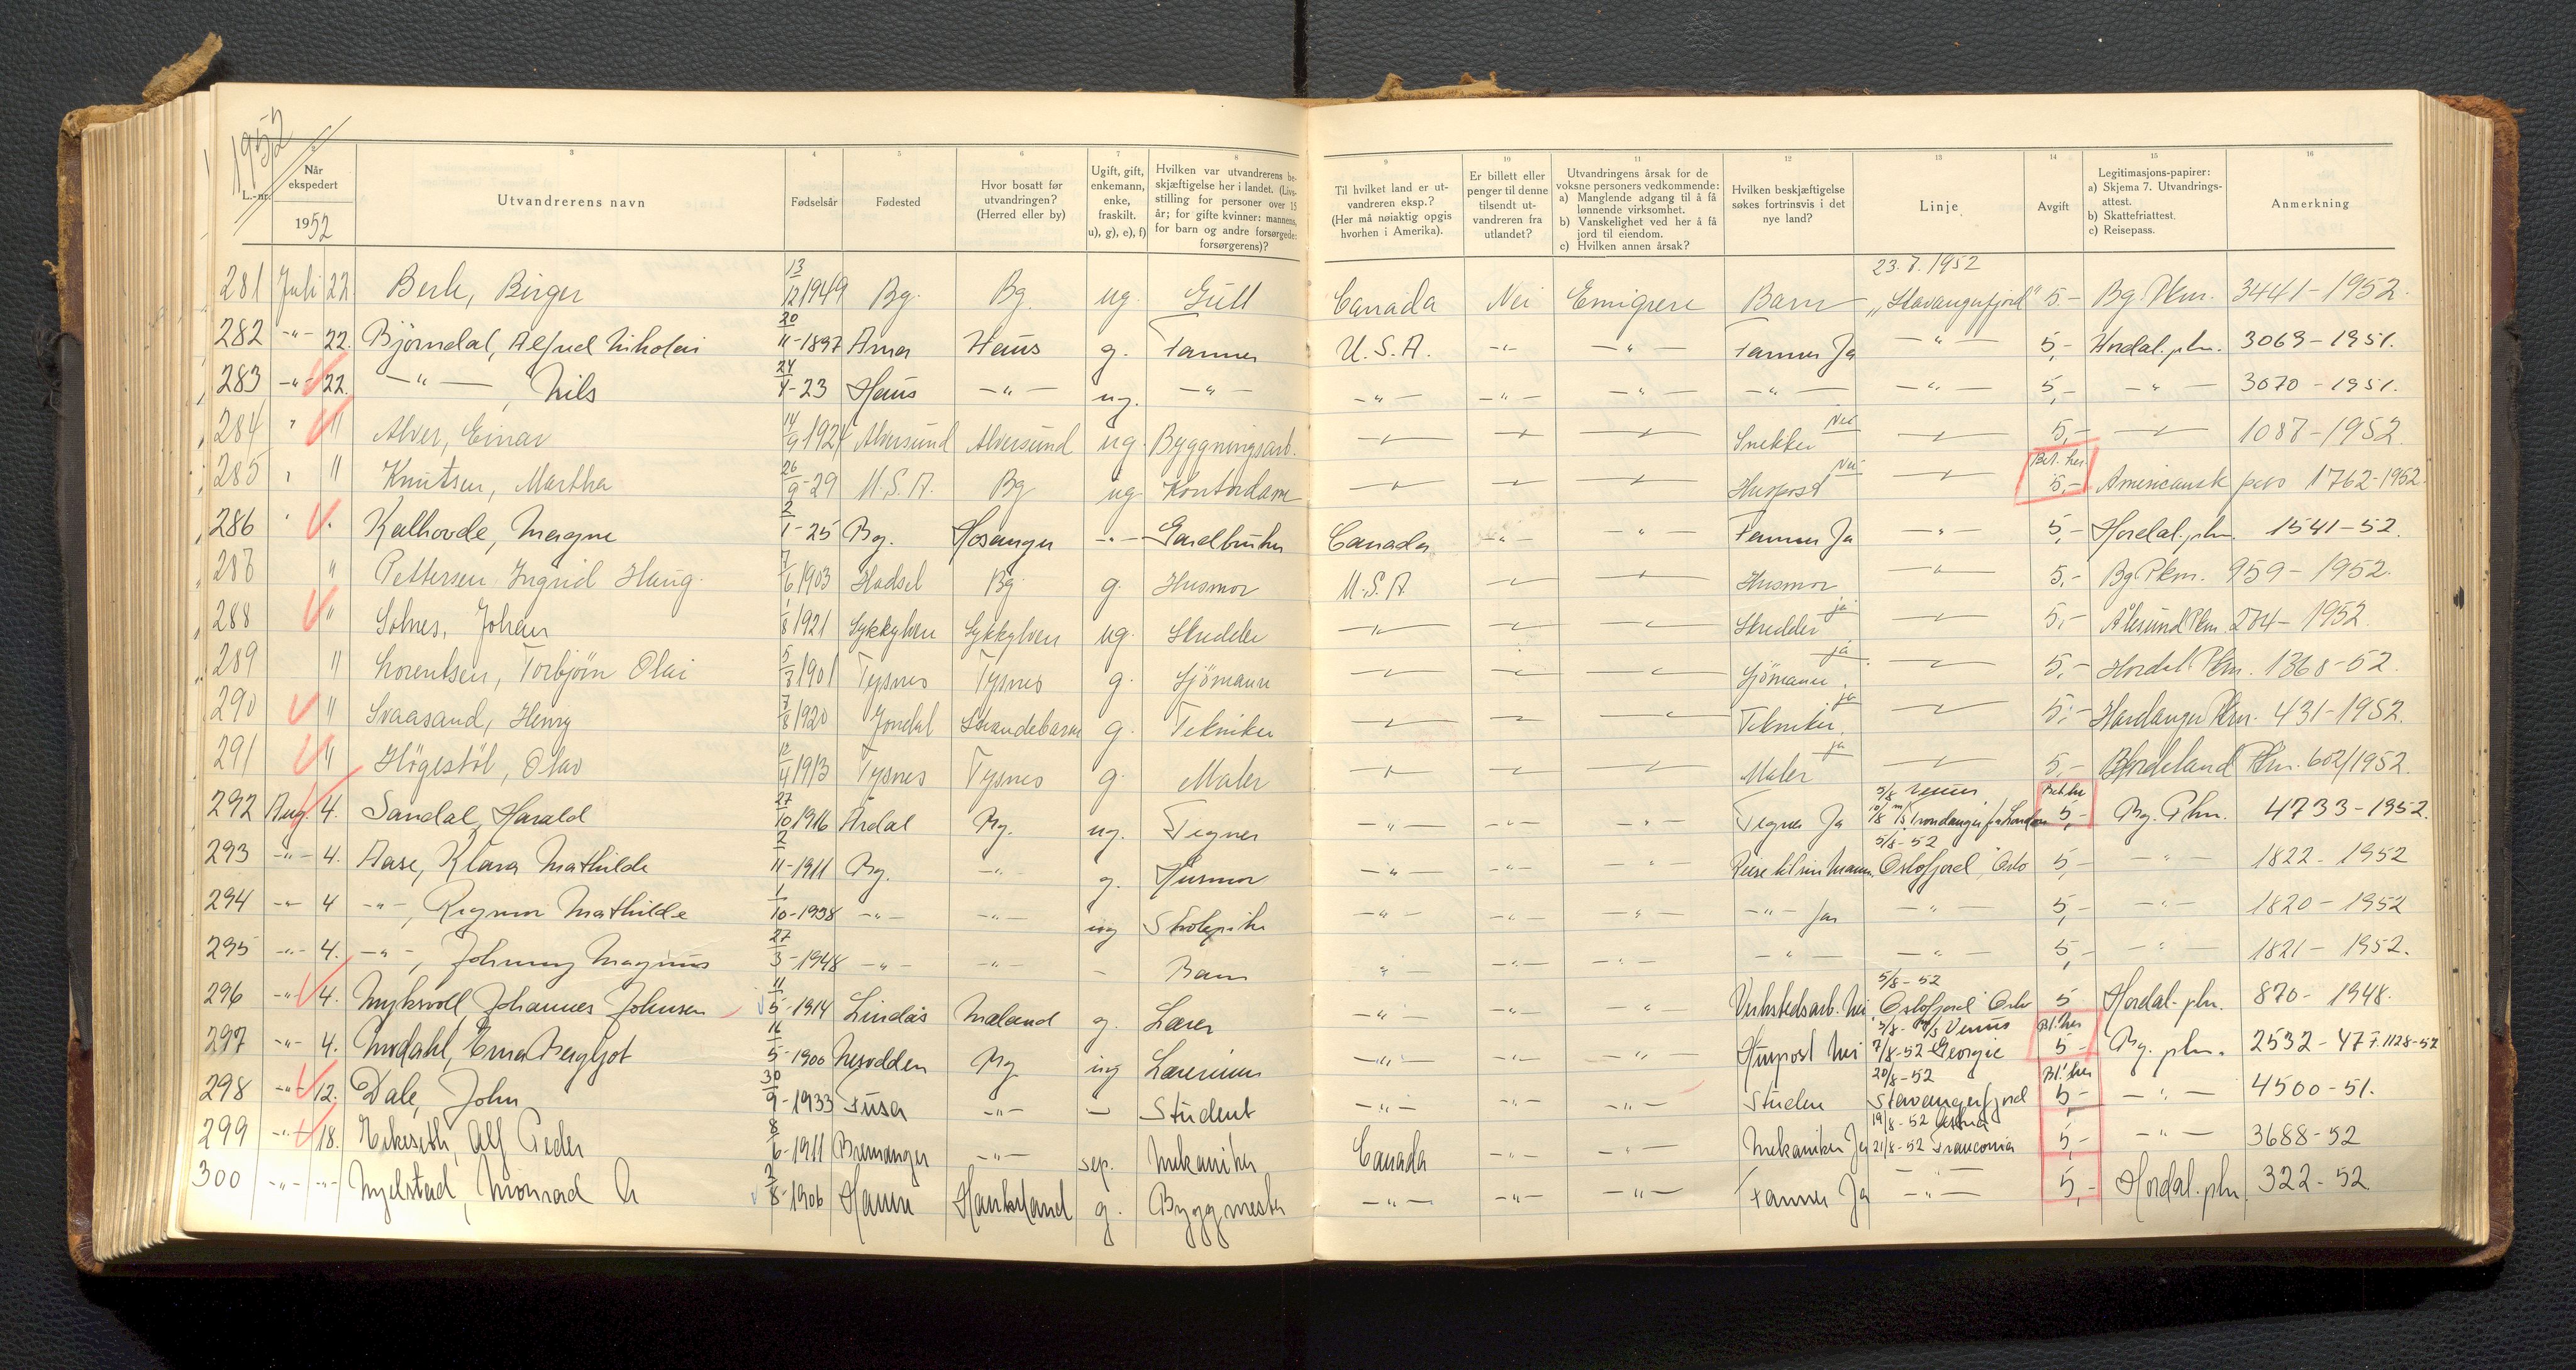 1952
L.-nr.
Når ekspedert
1952
3
Utvandrerens navn
4
Fødselsår
5
Fødested
6
Hvor bosatt før utvandringen? (Herred eller by)
7
Ugift, gift, enkemann, enke, fraskilt. u), g), e), f)
8
Hvilken var utvandrerens beskjæftigelse her i landet. (Livsstilling for personer over 15 år; for gifte kvinner: mannens, for barn og andre forsørgede: forsørgerens)?
9
Til hvilket land er utvandreren eksp.? (Her må nøiaktig opgis hvorhen i Amerika).
10
Er billett eller penger til denne tilsendt utvandreren fra utlandet?
11
Utvandringens årsak for de voksne personers vedkommende:
a) Manglende adgang til å få lønnende virksomhet.
b) Vanskelighet ved her å få jord til eiendom.
c) Hvilken annen årsak?
12
Hvilken beskjæftigelse søkes fortrinsvis i det nye land?
13
Linje
14
Avgift
15
Legitimasjons-papirer:
a) Skjema 7. Utvandringsattest.
b) Skattefriattest.
c) Reisepass.
16
Anmerkning
23.7.1952
281 Juli 22 Berle, Birger 13/12 1949 Bg. Bg. ug. Canada Nei Emigrere Barn "Stavangerfjord" 5- Bg. Pkm. 3441-1952.
282 -"- 22. Bjørndal, Alfred Nikolai 20/11-1897 Arna Haus g. Farmer U.S.A. -"- -"- Farmer Ja -"- 5,- Hordal. pkm. 3069-1951.
283 -"- 22. -"-, Nils 24/4-23 Haus -"- ug. -"- -"- -"- -"- -"- -"- 5,- -"- 3070-1951.
284 " " Alver, Einar 14/9 1924 Alversund Alversund ug. Byggningsarb. -"- -"- -"- Snekker Nei -"- 5,- -"- 1087-1952
285 " " Knutsen, Martha 26/9-29 U.S.A. Bg ug Kontordame -"- -"- -"- Huspost Nei -"- Bet. her 5,- Americansk pass 1762-1952.
286 " " Kalhovde, Magne 2/1-25 Bg. Hosanger -"- Gardbruker Canada -"- -"- Farmer Ja -"- 5,- Hordal. pkm. 1541-52.
287 " Pettersen Ingrid Haug 7/6 1903 Hadsel Bg g. Husmor U.S.A -"- -"- Husmor -"- 5,- Bg Pkm. 959-1952.
288 " Solnes, Johan 1/8 1921 Sykkylven Sykkylven ug. Skredder -"- -"- -"- Skredder ja -"- 5,- Ålesund Pkm. 274-1952.
289 " Lorentsen, Torbjørn Olai 5/3 1901 Tysnes Tysnes g. Sjömann -"- -"- -"- Sjömann. ja -"- 5,- Hordal. Pkm. 1368-52.
290 " Svaasand, Henry 7/8 1920 Jondal Strandebarm g. Tekniker -"- -"- -"- Tekniker. ja -"- 5,- Hardanger Pkm. 431-1952.
291 " Högestöl, Olav 12/4 1913 Tysnes Tysnes g. Maler -"- -"- -"- Maler ja -"- 5- Hordaland Pkm. 602/1952.
292 Aug. 4. Sandal, Harald 27/10 1916 Årdal Bg. ug. Tegner -"- -"- -"- Tegner Ja 5/8 Venus Bet. her 5,- Bg. Pkm. 4733-1952.
5/8-52
293 -"- 4. Aase, Klara Mathilde 2/11-1911 Bg. -"- g. Husmor -"- -"- -"- Reise til sin mann. "Oslofjord" Oslo 5,- -"- 1822-1952
294 -"- 4 -"-, Ragnar Mathilde 1/10-1938 -"- -"- ug Skolepike -"- -"- -"- -"- far -"- 5,- -"- 1820-1952
295 -"- 4. -"-, Johnny Magnus 27/3-1948 -"- -"- - Barn -"- -"- -"- -"- -"- 5,- -"- 1821-1952.
5/8-52
296 -"- 4. Myksvoll, Johannes Johnsen 11/5-1914 Lindås Mæland g. Lærer -"- -"- -"- Verkstedsarb. Nei "Oslofjord" Oslo 5 Hordal. pkm. 870-1948.
297 -"- 4. Nordahl, Erna Bergljot 16/5-1900 Nesodden Bg ug Lærerinne -"- -"- -"- Huspost Nei 5/8- M/S Venus 7/8-52 Georgic Bl. her 5- Bg. pkm. 2532-47 F. 1128-52
298 -"- 12. Dale, John 30/9-1933 Fusa -"- - Student -"- -"- -"- Student 20/8-52 Stavangerfjord Bl. her 5- -"- 4500-51.
299 -"- 18. Eikeseth, Alf Peder 8/6-1911 Bremanger -"- sep. Mekaniker Canada -"- -"- Mekaniker Ja 19/8-52 21/8-52 Franconia 5,- -"- 3688-52
300 -"- -"- Myelstad, Monrad A 2/8-1906 Hamre g. Byggmester -"- -"- -"- Farmer Ja -"- 5,- Hordal. pkm. 322-52